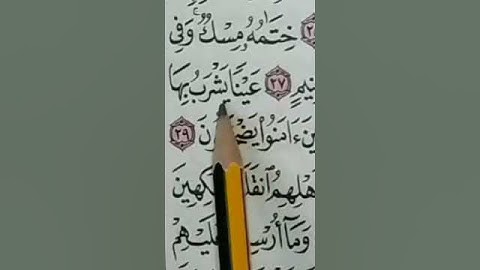 خِتَٰمُهُۥ مِسْكٌ ۚ وَفِى
نِيمٍ ٢٧ عَيْنًا يَشْرَبُ بِهَا
ينَ ءَامَنُوا۟ يَضْحَ نَ ٢٩
هْلِهِمُ ٱنقَلَ كِهِينَ
وَمَآ أُرْسِ لَيْهِمْ